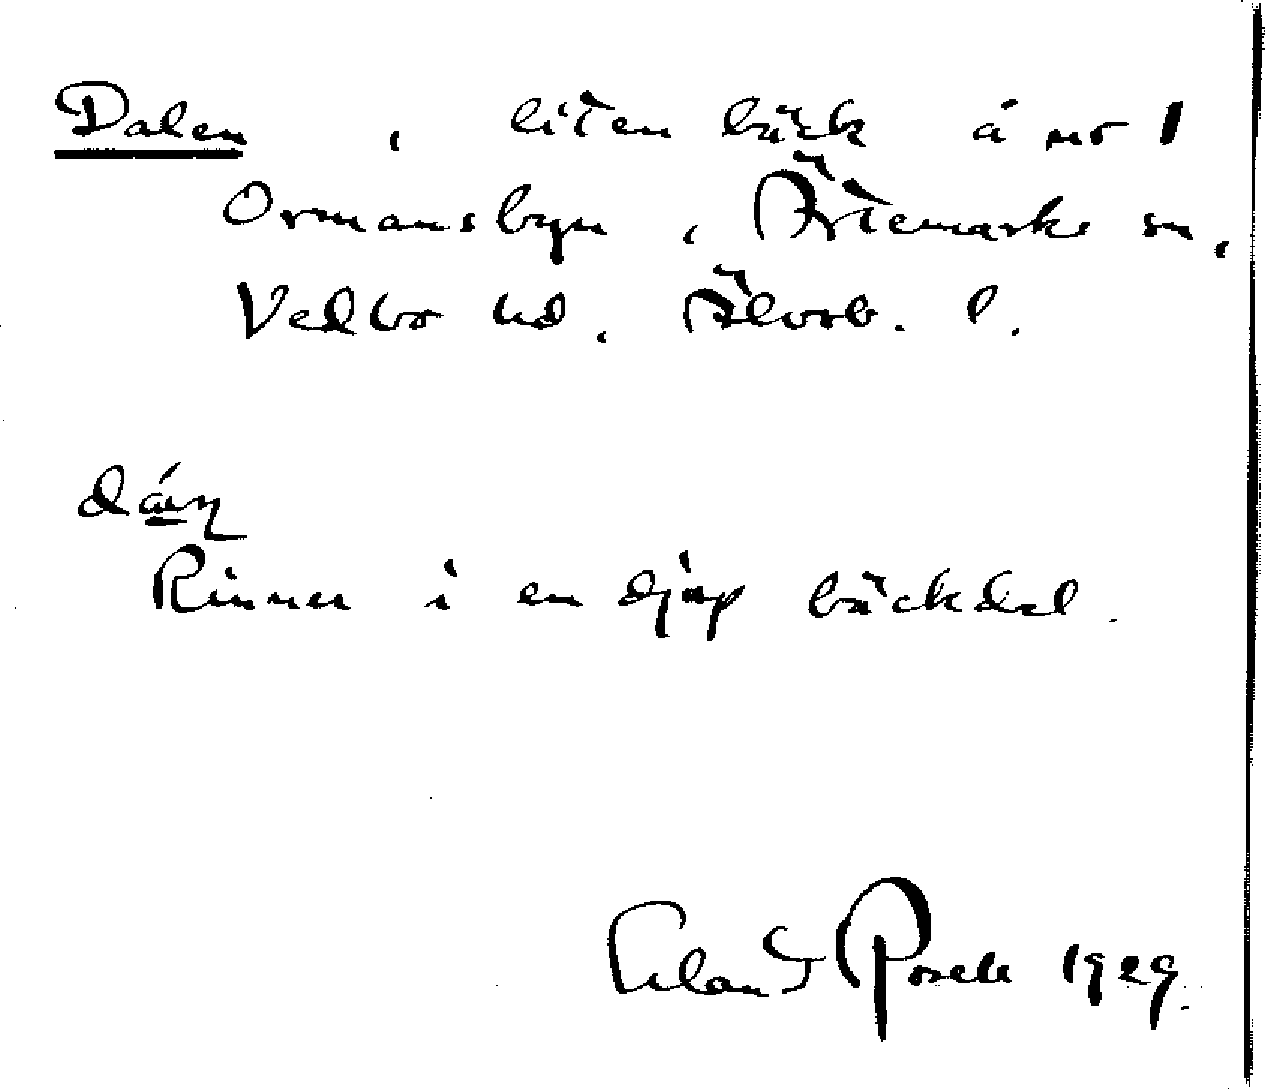 Dalen, liten bäck å nr 1
Ormansbyn, Ärtemarks sn,
Vedbo hd, Älvsb. l.
Rinner i en djup bäckdal.
Erland Rosell 1929.